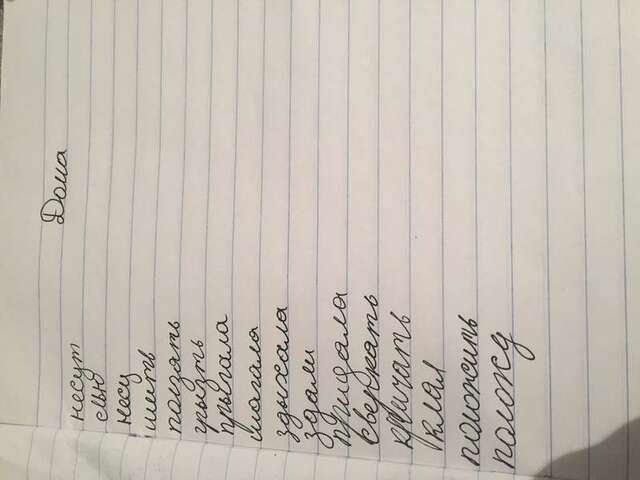 Дома
несут
слью
несу
шить
ползять
грызть
прыгала
шагала
здыхала
здали
придала
сверкать
кричать
клал
положить
положу